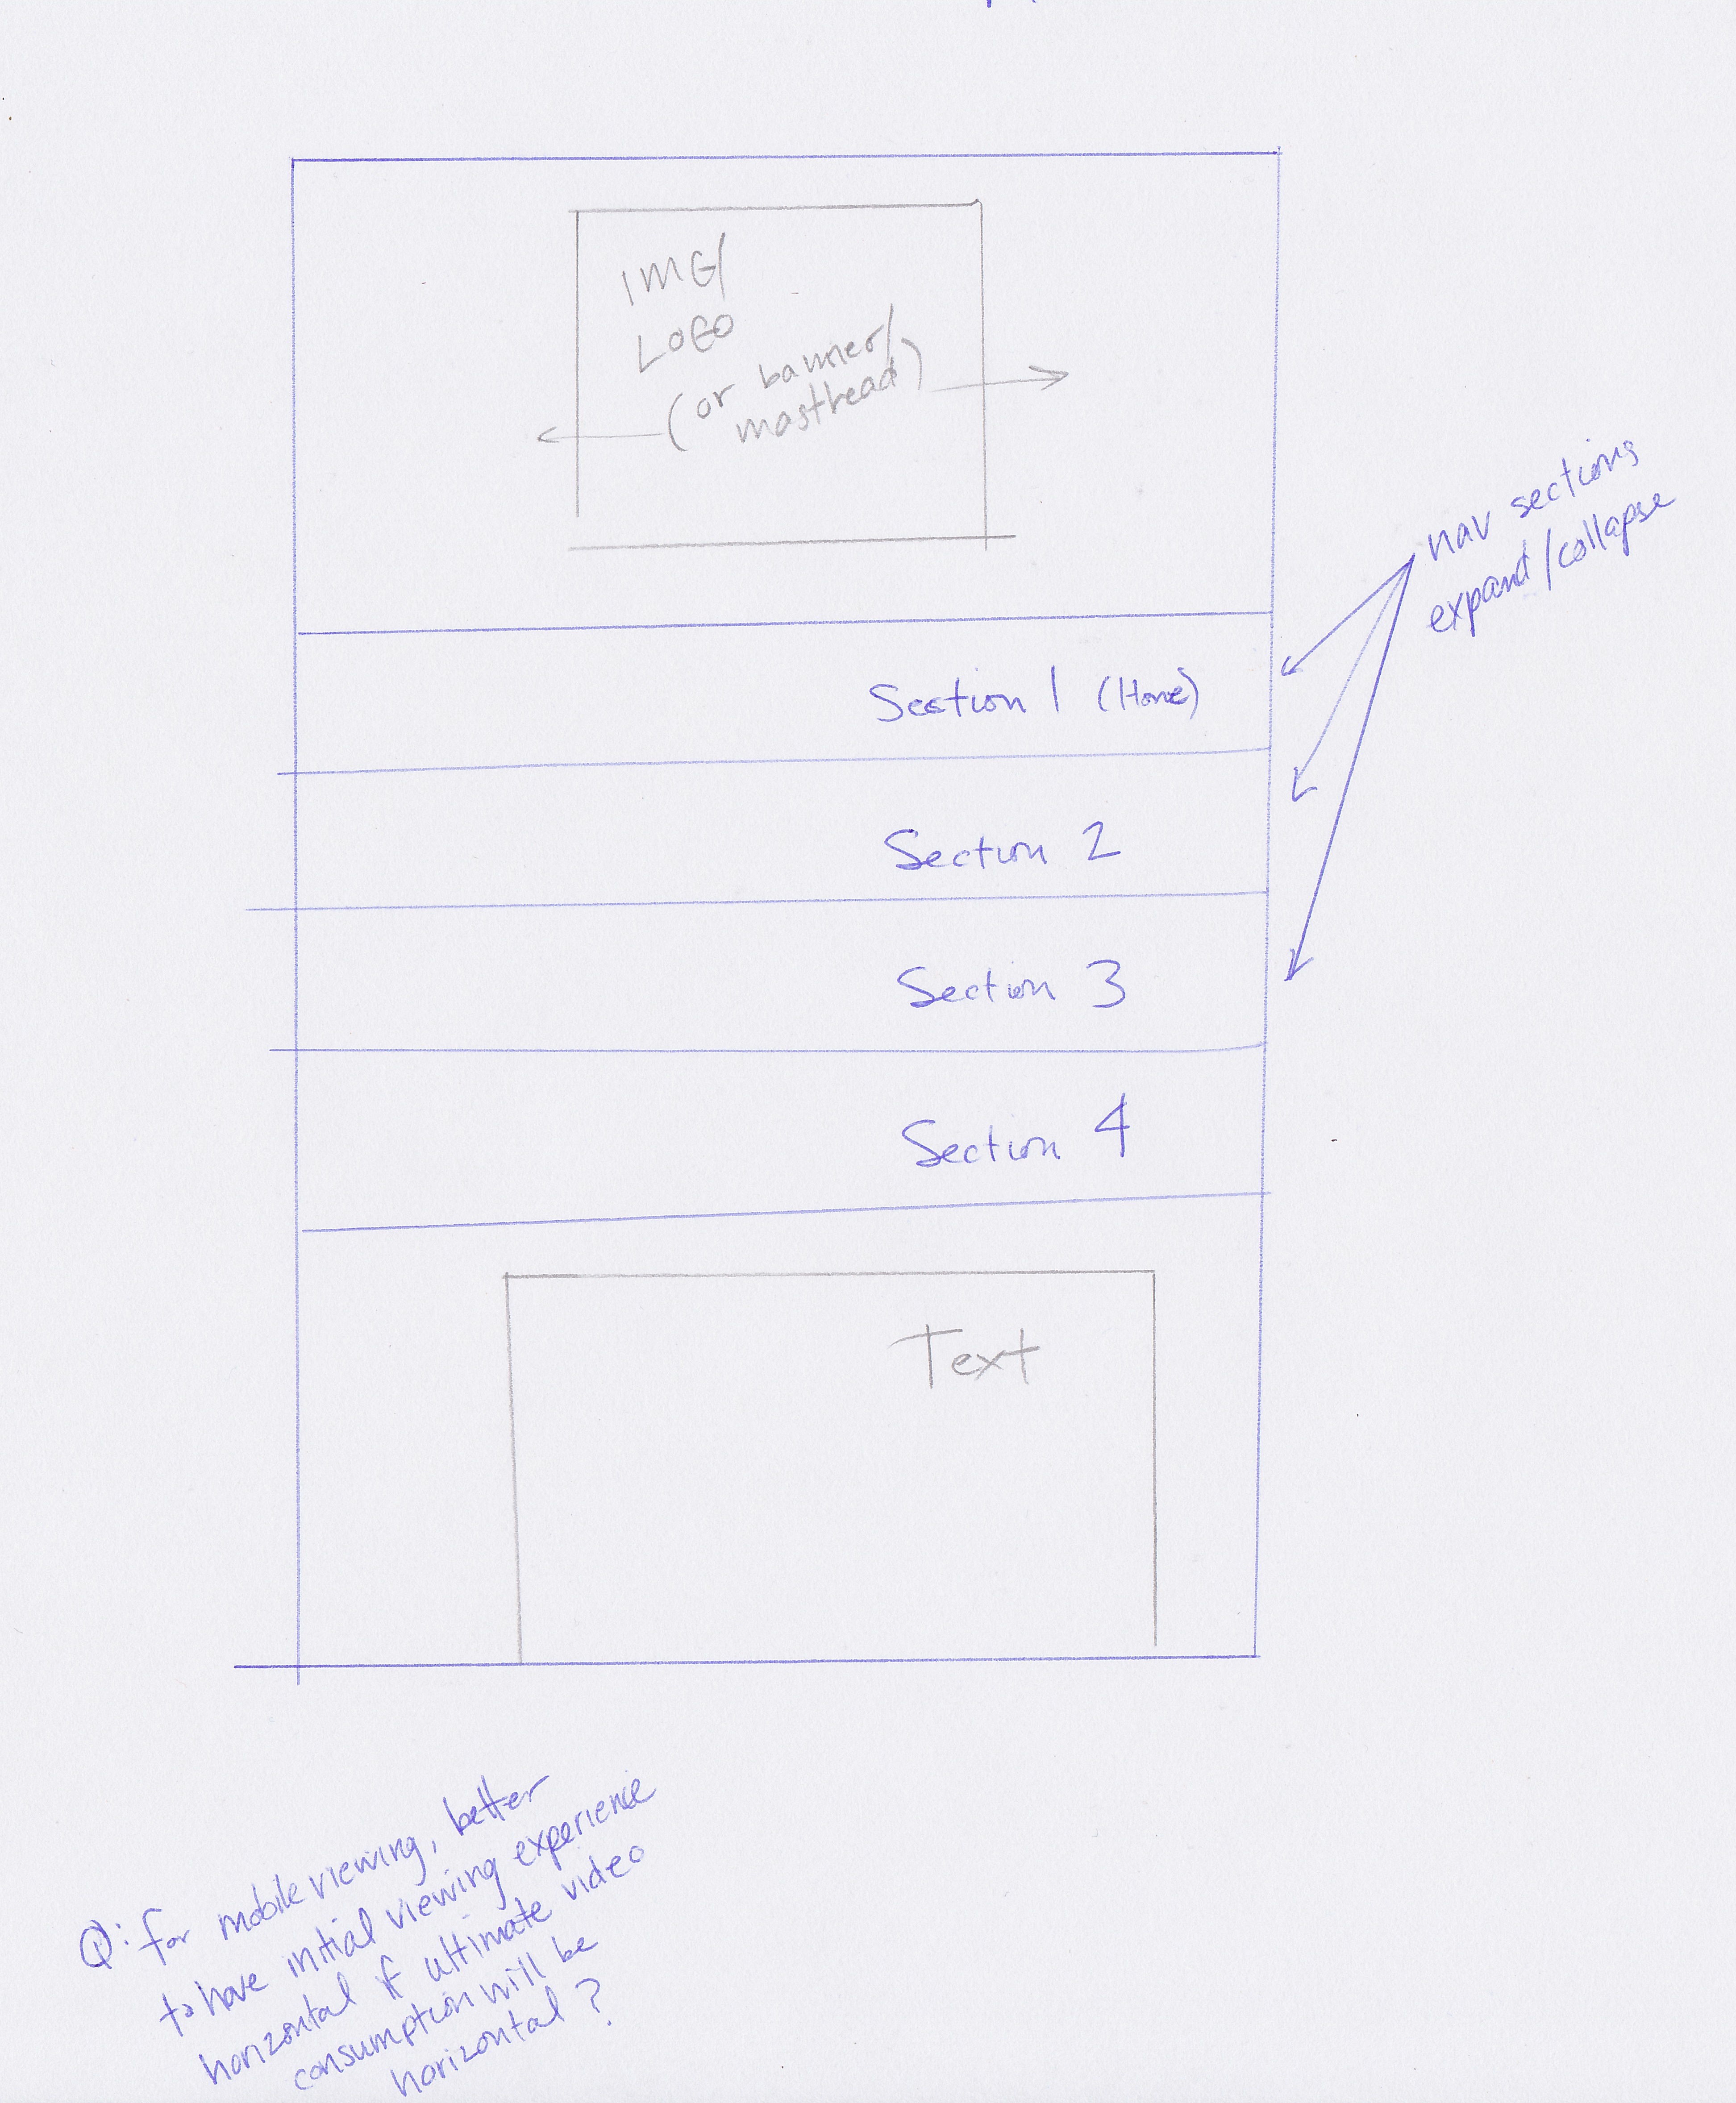 IMG/
LOGO
(or banner/
masthead)
nav sections
expand/collapse
Section 1 (Home)
Section 2
Section 3
Section 4
Text
Q: for mobile viewing, better
to have initial viewing experience
horizontal if ultimate video
consumption will be
horizontal?